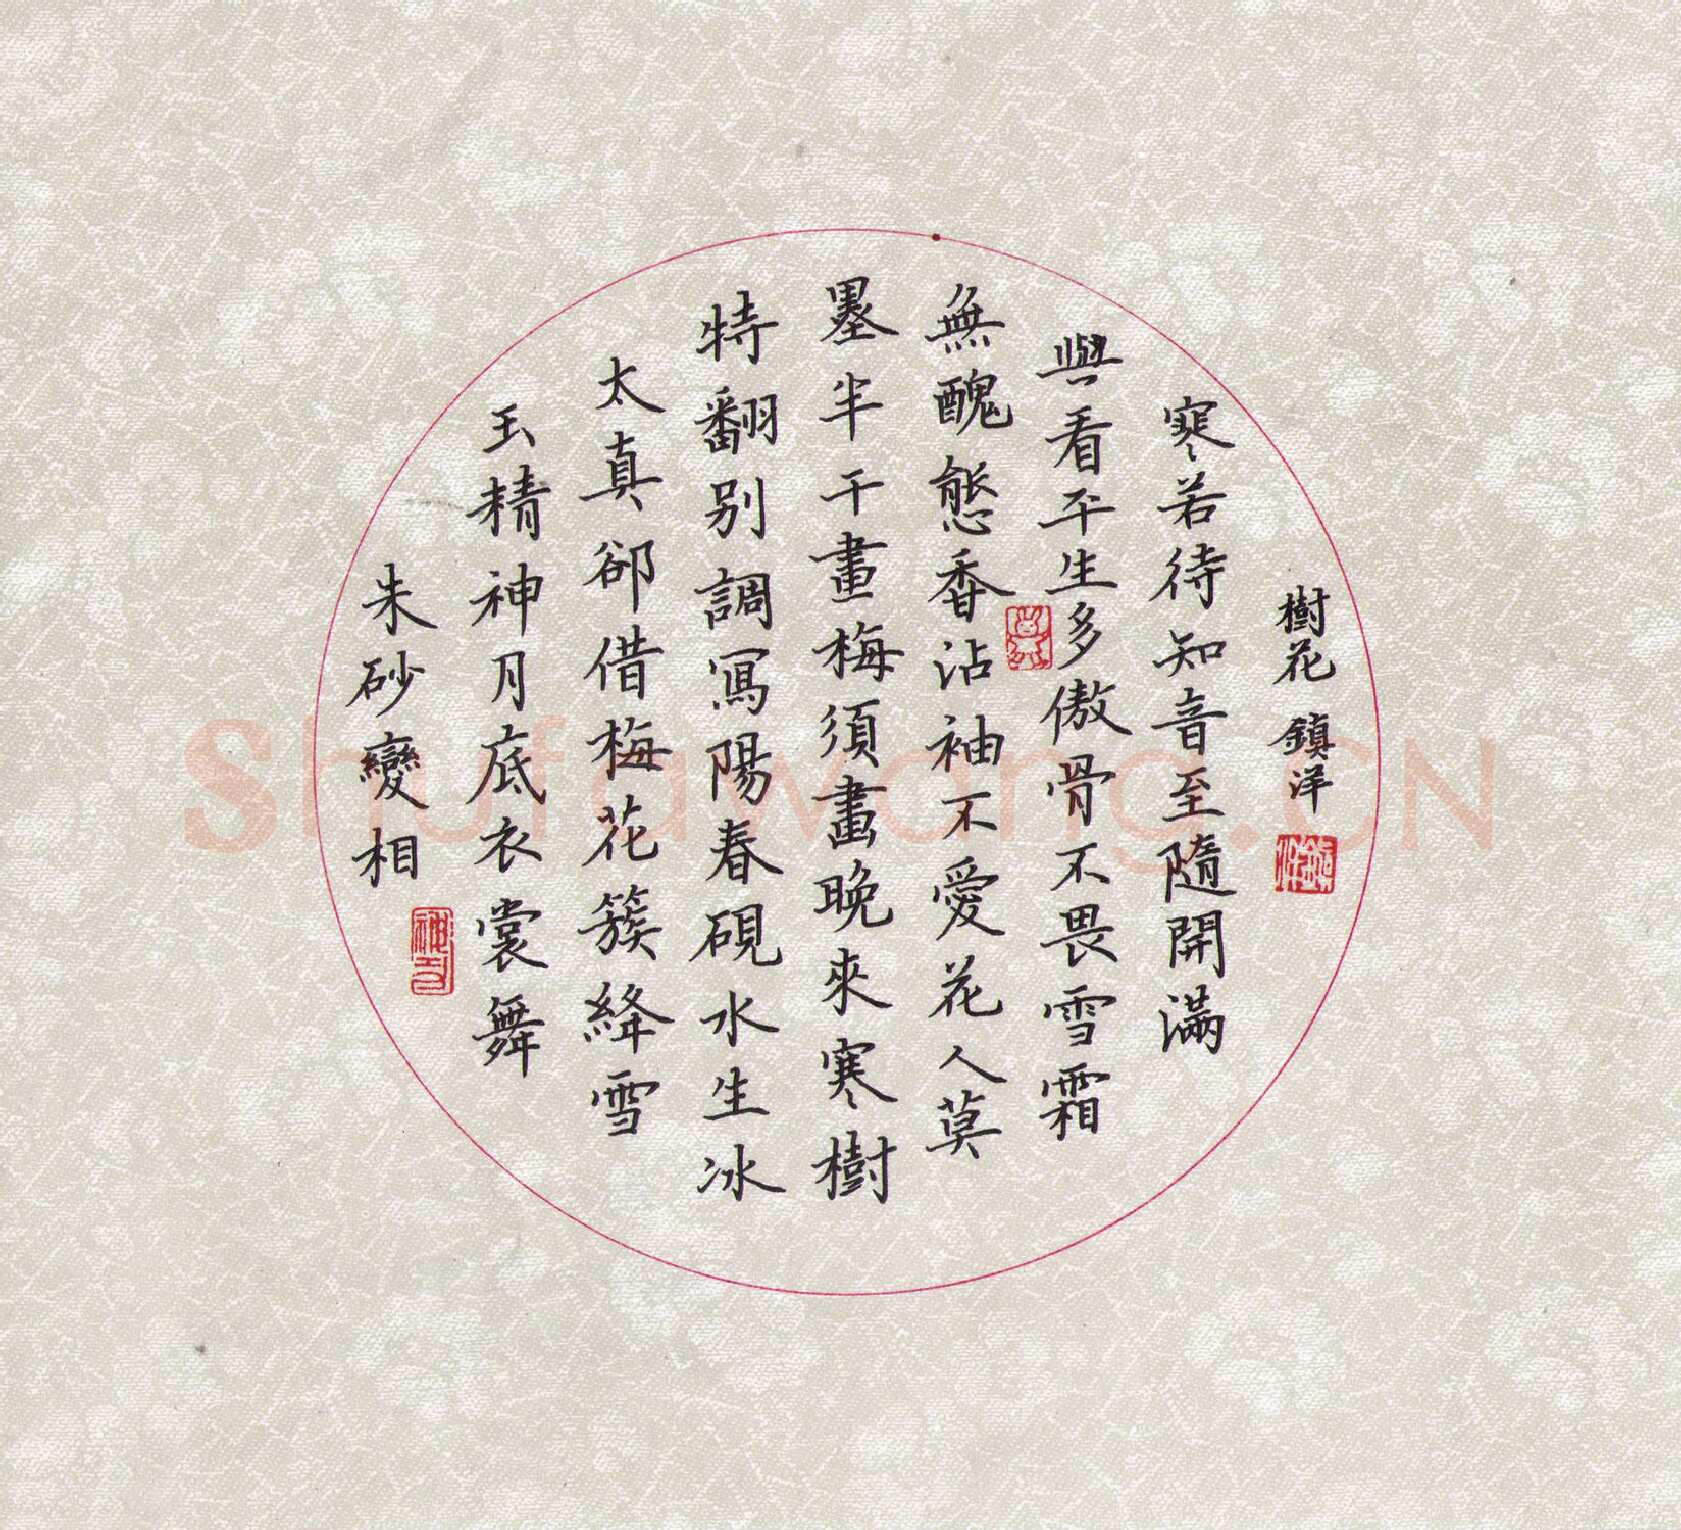 朱砂變相
玉精神月底衣裳舞
太真卻借梅花簇絳雪
特翻別調寫陽春硯水生冰
墨半干畫梅須畫晚來寒樹
無醜態香沾袖不愛花人莫
與看平生多傲骨不畏雪霜
寒若待知音至隨開滿
樹花 鎮洋
Shufawang.CN